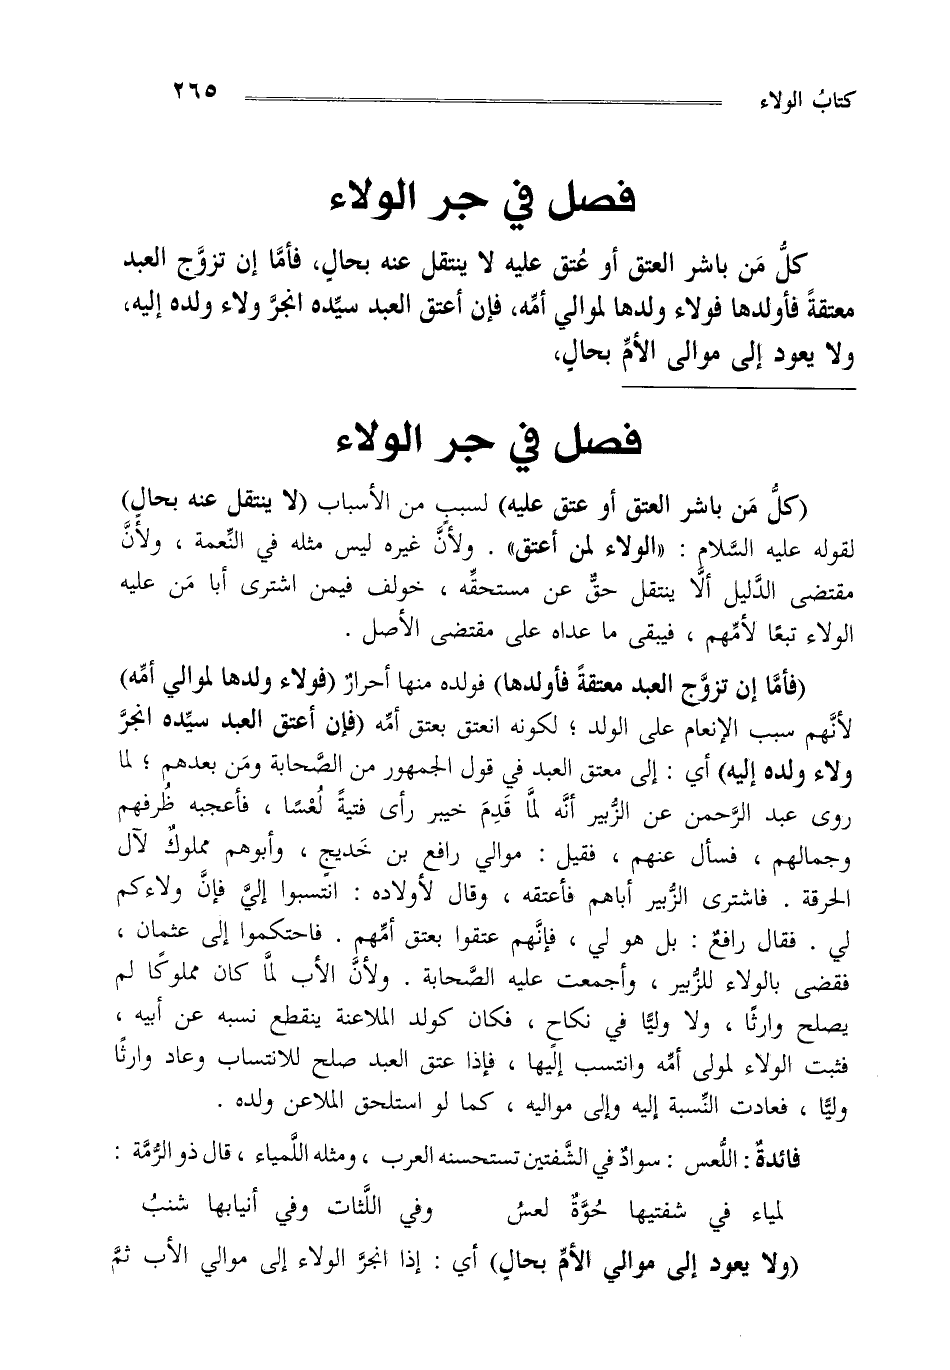 كتابُ الولاء ٢٦٥
فصل في جر الولاء
كلُّ مَن باشر العتق أو عُتق عليه لا ينتقل عنه بحالٍ، فأمَّا إن تزوَّج العبد
معتقةً فأولدها فولاء ولدها لموالي أمِّه، فإن أعتق العبد سيِّده انجرَّ ولاء ولده إليه،
ولا يعود إلى موالى الأمِّ بحالٍ،
فصل في جر الولاء
(كلُّ مَن باشر العتق أو عتق عليه) لسببٍ من الأسباب (لا ينتقل عنه بحالٍ)
لقوله عليه السَّلام : «الولاء لمن أعتق» . ولأنَّ غيره ليس مثله في النِّعمة ، ولأنَّ
مقتضى الدَّليل ألَّا ينتقل حقٌّ عن مستحقِّه ، خولف فيمن اشترى أبا مَن عليه
الولاء تبعًا لأمِّهم ، فيبقى ما عداه على مقتضى الأصل .
(فأمَّا إن تزوَّج العبد معتقةً فأولدها) فولده منها أحرارٌ (فولاء ولدها لموالي أمِّه)
لأنَّهم سبب الإنعام على الولد ؛ لكونه انعتق بعتق أمِّه (فإن أعتق العبد سيِّده انجرَّ
ولاء ولده إليه) أي : إلى معتق العبد في قول الجمهور من الصَّحابة ومَن بعدهم ؛ لما
روى عبد الرَّحمن عن الزُّبير أنَّه لمَّا قَدِمَ خيبر رأى فتيةً لُعْسًا ، فأعجبه ظُرفهم
وجمالهم ، فسأل عنهم ، فقيل : موالي رافع بن خَديجٍ ، وأبوهم مملوكٌ لآل
الحرقة . فاشترى الزُّبير أباهم فأعتقه ، وقال لأولاده : انتسبوا إليَّ فإنَّ ولاءكم
لي . فقال رافعٌ : بل هو لي ، فإنَّهم عتقوا بعتق أمِّهم . فاحتكموا إلى عثمان ،
فقضى بالولاء للزُّبير ، وأجمعت عليه الصَّحابة . ولأنَّ الأب لمَّا كان مملوكًا لم
يصلح وارثًا ، ولا وليًّا في نكاحٍ ، فكان كولد الملاعنة ينقطع نسبه عن أبيه ،
فثبت الولاء لمولى أمِّه وانتسب إليها ، فإذا عتق العبد صلح للانتساب وعاد وارثًا
وليًّا ، فعادت النِّسبة إليه وإلى مواليه ، كما لو استلحق الملاعن ولده .
فائدةٌ : اللُّعس : سوادٌ في الشَّفتين تستحسنه العرب ، ومثله اللَّمياء ، قال ذو الرُّمَّة :
لمياء في شفتيها حُوَّةٌ لعسُ وفي اللِّثات وفي أنيابها شنبُ
(ولا يعود إلى موالي الأمِّ بحالٍ) أي : إذا انجرَّ الولاء إلى موالي الأب ثمَّ